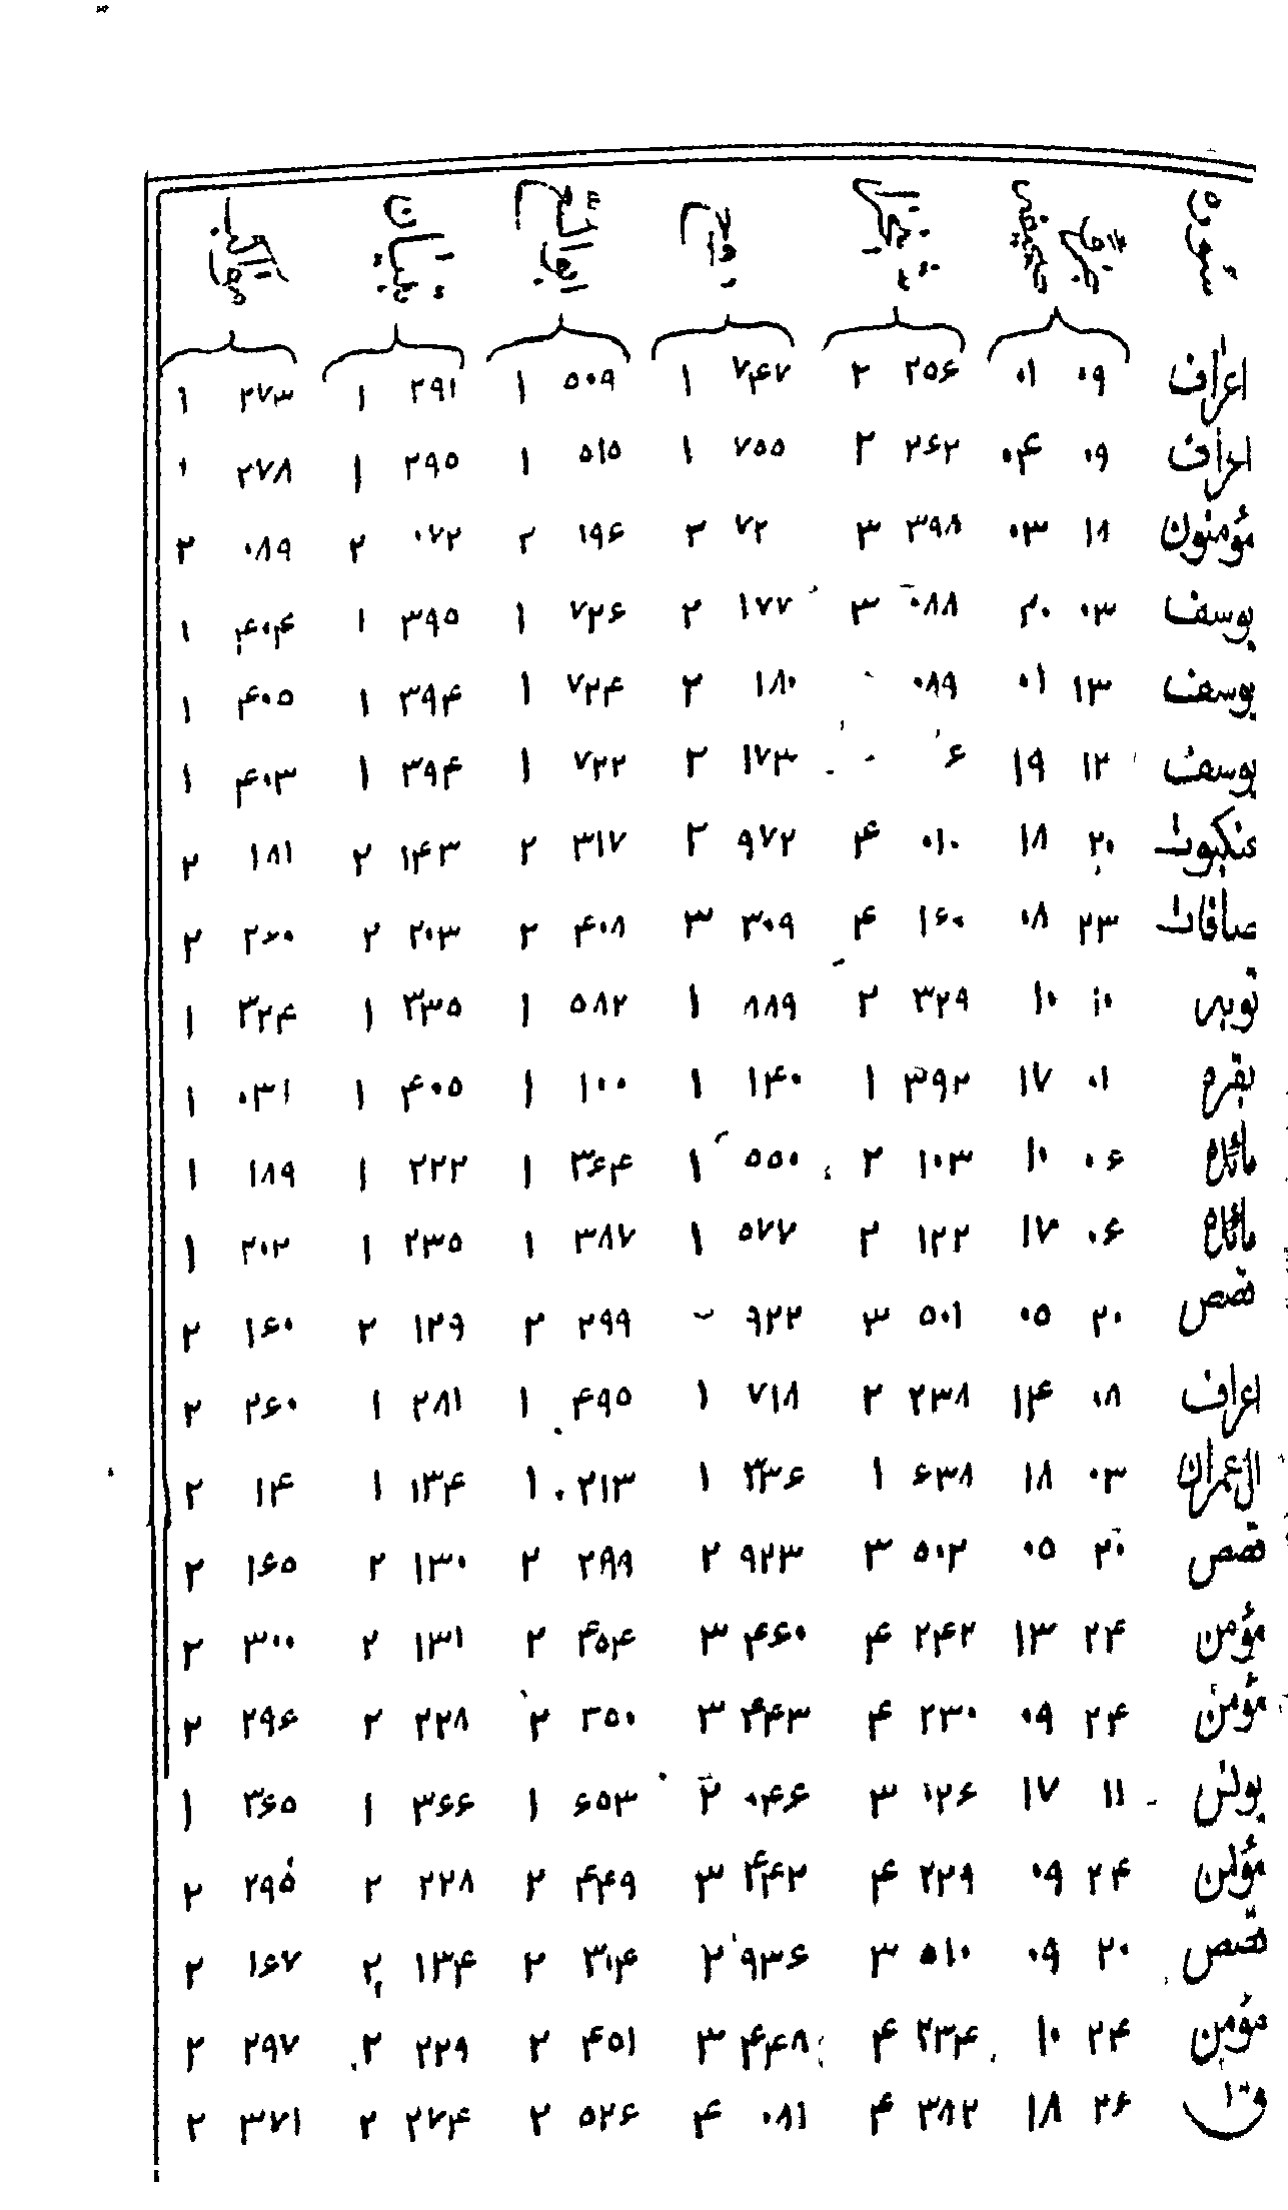 سوره
اعراف ۰۹ ۰۱ ۲۵۶ ۲ ۷۴۷ ۱ ۵۰۹ ۱ ۲۹۱ ۱ ۲۷۳ ۱
اعراف ۰۹ ۰۴ ۲۶۲ ۲ ۷۵۵ ۱ ۵۱۵ ۱ ۲۹۵ ۱ ۲۷۸ ۱
مؤمنون ۱۸ ۰۳ ۳۹۸ ۳ ۷۲ ۳ ۱۹۶ ۲ ۰۷۲ ۲ ۰۸۹ ۲
یوسف ۰۳ ۲۰ ۰۸۸ ۳ ۱۷۷ ۲ ۷۲۶ ۱ ۳۹۵ ۱ ۴۰۴ ۱
یوسف ۱۳ ۰۱ ۰۸۹ ۱۸۰ ۲ ۷۲۴ ۱ ۳۹۴ ۱ ۴۰۵ ۱
یوسف ۱۲ ۱۹ ۶ ۱۷۳ ۲ ۷۲۲ ۱ ۳۹۴ ۱ ۴۰۳ ۱
عنکبوت ۲۰ ۱۸ ۰۱۰ ۴ ۹۷۲ ۲ ۳۱۷ ۲ ۱۴۳ ۲ ۱۸۱ ۲
صافات ۲۳ ۰۸ ۱۶۰ ۴ ۳۰۹ ۳ ۴۰۸ ۲ ۲۰۳ ۲ ۲۶۰ ۲
توبه ۱۰ ۱۰ ۳۲۹ ۲ ۸۸۹ ۱ ۵۸۲ ۱ ۳۳۵ ۱ ۳۲۴ ۱
بقره ۰۱ ۱۷ ۳۹۲ ۱ ۱۴۰ ۱ ۱۰۰ ۱ ۴۰۵ ۱ ۰۳۱ ۱
مائده ۰۶ ۱۰ ۱۰۳ ۲ ۵۵۰ ۱ ۳۶۴ ۱ ۲۲۲ ۱ ۱۸۹ ۱
مائده ۰۶ ۱۷ ۱۲۲ ۲ ۵۷۷ ۱ ۳۸۷ ۱ ۲۳۵ ۱ ۲۰۲ ۱
قصص ۲۰ ۰۵ ۵۰۱ ۳ ۹۲۲ ۲۹۹ ۲ ۱۲۹ ۲ ۱۶۰ ۲
اعراف ۰۸ ۱۴ ۲۳۸ ۲ ۷۱۸ ۱ ۴۹۵ ۱ ۲۸۱ ۱ ۲۶۰ ۲
ال عمران ۰۳ ۱۸ ۶۳۸ ۱ ۳۳۶ ۱ ۲۱۳ ۱ ۱۳۴ ۱ ۱۴ ۲
قصص ۲۰ ۰۵ ۵۰۲ ۳ ۹۲۳ ۲ ۲۹۹ ۲ ۱۳۰ ۲ ۱۶۵ ۲
مؤمن ۲۴ ۱۳ ۲۴۲ ۴ ۴۶۰ ۳ ۴۵۴ ۲ ۱۳۱ ۲ ۳۰۰ ۲
مؤمن ۲۴ ۰۹ ۲۳۰ ۴ ۴۴۳ ۳ ۳۵۰ ۲ ۲۲۸ ۲ ۲۹۶ ۲
یونس ۱۱ ۱۷ ۰۲۶ ۳ ۰۴۶ ۲ ۶۵۳ ۱ ۳۶۶ ۱ ۳۶۵ ۱
مؤمن ۲۴ ۰۹ ۲۲۹ ۴ ۴۴۲ ۳ ۴۴۹ ۲ ۲۲۸ ۲ ۲۹۵ ۲
قصص ۲۰ ۰۹ ۵۱۰ ۳ ۹۳۶ ۲ ۳۰۴ ۲ ۱۳۴ ۲ ۱۶۷ ۲
مؤمن ۲۴ ۱۰ ۲۳۴ ۴ ۴۴۸ ۳ ۴۵۱ ۲ ۲۲۹ ۲ ۲۹۷ ۲
ق ۲۶ ۱۸ ۳۸۲ ۴ ۰۸۱ ۴ ۵۲۶ ۲ ۲۷۴ ۲ ۳۷۱ ۲